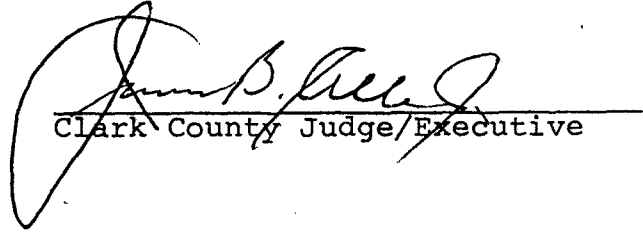 James B. Allen Jr.
Clark County Judge/Executive